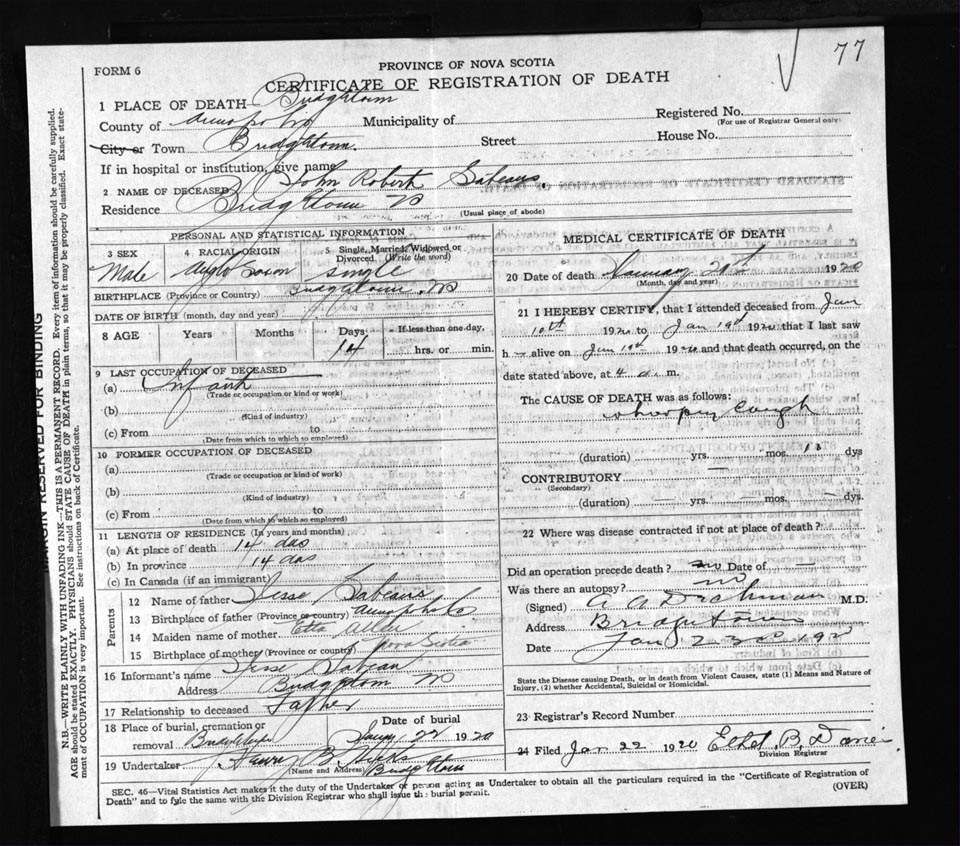 77
FORM 6
PROVINCE OF NOVA SCOTIA
CERTIFICATE OF REGISTRATION OF DEATH
1 PLACE OF DEATH Bridgetown
County of Annapolis Municipality of Registered No.
(For use of Registrar General only)
City or Town Bridgetown. Street House No.
If in hospital or institution, give name
2 NAME OF DECEASED John Robert Sabeans.
Residence Bridgetown NS
(Usual place of abode)
PERSONAL AND STATISTICAL INFORMATION
3 SEX 4 RACIAL ORIGIN 5 Single, Married, Widowed or Divorced (Write the word)
Male Anglo Saxon single
BIRTHPLACE (Province or Country) Bridgetown, NS
DATE OF BIRTH (month, day and year)
8 AGE Years Months Days If less than one day,
14 hrs. or min.
9 LAST OCCUPATION OF DECEASED
(a) Infant
(Trade or occupation or kind or work)
(b)
(Kind of industry)
(c) From to
(Date from which to which so employed)
10 FORMER OCCUPATION OF DECEASED
(a)
(Trade or occupation or kind of work)
(b)
(Kind of industry)
(c) From to
(Date from which to which so employed)
11 LENGTH OF RESIDENCE (In years and months)
(a) At place of death 14 das
(b) In province 14 das
(c) In Canada (if an immigrant)
Parents
12 Name of father Jesse Sabeans
13 Birthplace of father (Province or country)
14 Maiden name of mother Etta
15 Birthplace of mother (Province or country) Nova Scotia
16 Informant's name Jesse Sabean
Address Bridgetown NS
17 Relationship to deceased Father
18 Place of burial, cremation or removal Date of burial
Bridgetown Jany 22 1920
19 Undertaker Henry B. Hicks
(Name and Address) Bridgetown
MEDICAL CERTIFICATE OF DEATH
20 Date of death January 21st 1920
(Month, day and year)
21 I HEREBY CERTIFY, that I attended deceased from Jan
10th 1920 to Jan 19th 1920 that I last saw
h alive on Jan 19th 1920 and that death occurred, on the
date stated above, at 4 a. m.
The CAUSE OF DEATH was as follows:
whooping cough
(duration) yrs. mos. 10 dys
CONTRIBUTORY —
(Secondary)
(duration) — yrs. — mos. — dys.
22 Where was disease contracted if not at place of death?
Did an operation precede death? no Date of
Was there an autopsy? no
(Signed) A A Dechman M.D.
Address Bridgetown
Date Jan 23rd 1920
State the Disease causing Death, or in death from Violent Causes, state (1) Means and Nature of
Injury, (2) whether Accidental, Suicidal or Homicidal.
23 Registrar's Record Number
24 Filed Jan 22 1920 Ethel. B.
Division Registrar
SEC. 46—Vital Statistics Act makes it the duty of the Undertaker or person acting as Undertaker to obtain all the particulars required in the "Certificate of Registration of
Death" and to fyle the same with the Division Registrar who shall issue the burial permit.
(OVER)
MARGIN RESERVED FOR BINDING
N.B.—WRITE PLAINLY WITH UNFADING INK—THIS IS A PERMANENT RECORD. Every item of information should be carefully supplied.
AGE should be stated EXACTLY. PHYSICIANS should STATE CAUSE OF DEATH in plain terms, so that it may be properly classified. Exact state-
ment of OCCUPATION is very important. See instructions on back of Certificate.